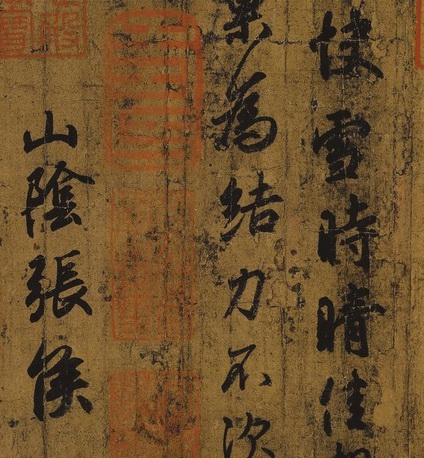 快雪時晴佳
果為結力不次
山陰張侯